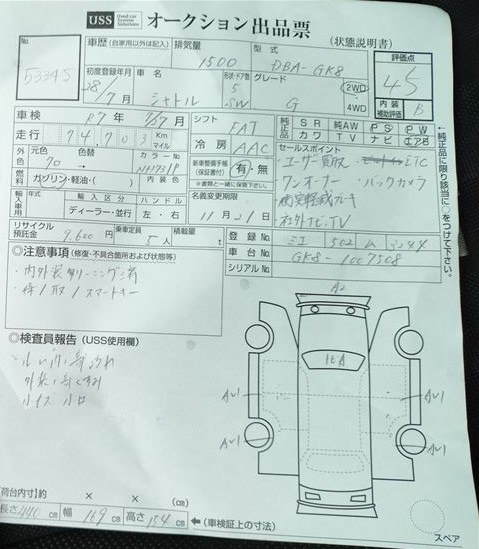 USS Used car System Solutions オークション出品票
(状態説明書)
No. 5334S
車歴 (自家用以外は記入) 排気量 1500 型式 DBA-GK8
評価点 4.5
初度登録年月 28/7月 車名 シャトル 形状・ドア数 5 SW グレード G 2WD・4WD
内装補助評価 B
車検 R7年 7/17月 シフト FAT
走行 74,703 Km マイル 冷房 AAC
純正品 SR 純AW PS PW
カワ TV ナビ エアB
外色 元色 色替 カラーNo. NH731P
内装色
燃料 ガソリン・軽油・( )
新車整備手帳(保証書付) 有・無
※書類と一緒に保管下さい。
セールスポイント
・ユーザー買取 ETC
・ワンオーナー バックカメラ
・衝突軽減ブレーキ
・社外ナビ、TV
←純正品に限り該当に○をつけて下さい。
輸入車用 年式 輸入区分 ハンドル
ディーラー・並行 左・右
名義変更期限 11月21日
リサイクル預託金 9,600円 乗車定員 5人 積載量 t
登録番号 502 ム
車台No. GK8-1007508
シリアルNo.
◎注意事項 (修復・不具合箇所および状態等)
・内外装クリーニング済
・スマートキー
◎検査員報告 (USS使用欄)
A2
A1
AU1
AU1
AU1
AU1
【荷台内寸】約 × × (cm)
長さ 440cm 幅 169cm 高さ 154cm ←(車検証上の寸法)
スペア